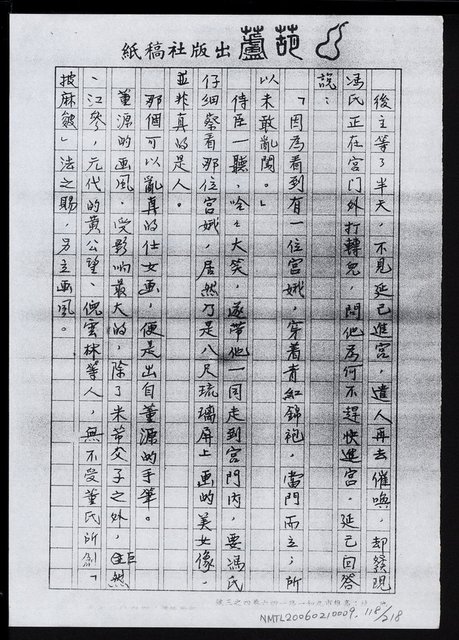 紙稿社版出蘆葫
後主等了半天，不見延己進宮，遣人再去催喚，却發現
馮氏正在宮門外打轉兒，問他為何不趕快進宮，延己回答
說：
「因為看到有一位宮娥，穿着青紅錦袍，當門而立；所
以未敢亂闖。」
侍臣一聽，哈哈大笑，遂帶他一同走到宮門內，要馮氏
仔細察看那位宮娥，居然乃是八尺琉璃屏上画的美女像，
並非真的是人。
那個可以亂真的仕女画，便是出自董源的手筆。
董源的画風，受影响最大的，除了米芾父子之外，巨然
、江參，元代的黃公望、倪雲林等人，無不受董氏所創「
披麻皴」法之賜，另立画風。
NMTL20060210009. 118/218